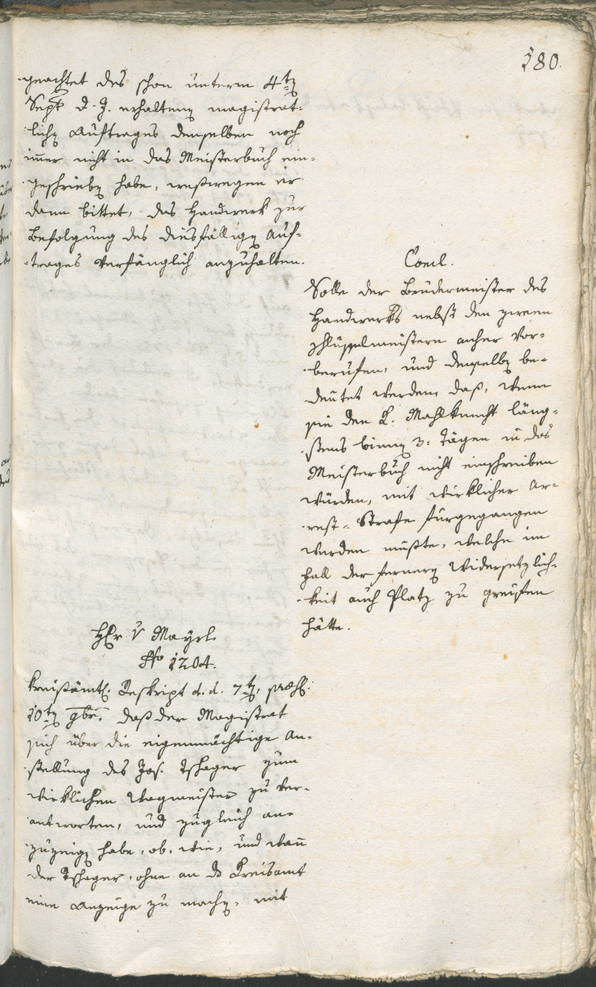 280.
geachtet des schon unterm 4t
Sept d. J. erhalteny magistrat-
lichy Auftrages denselben noch
immer nicht in das Meisterbuch ein-
geschrieby habe, weßwegen er
dann bittet, das Handwerk zur
Befolgung des diesfälligy Auf-
trages verfänglich anzuhalten.
Concl.
Solle der Brudermeister des
Handwerks nebst den zween
Schlüsselmeistern anher vor-
berufen, und denselby be-
deutet werden, daß, wenn
sie den L. Mahlknecht läng-
stens binny 3. Tägen in das
Meisterbuch nicht einschreiben
würden, mit wirklicher Ar-
rest-Strafe fürgegangen
werden müßte, welche im
Fall der fernery Widersetzlich-
keit auch Platz zu greifen
hätte.
Hr v Mayrl.
No 1204.
Kreisämtl. Reskript d. d. 7t, praes.
10t 9br, daß der Magistrat
sich über die eigenmächtige An-
stellung des Jos. Tschager zum
wirklichen Wagmeister zu ver-
antworten, und zugleich an-
zuzeigy habe, ob, wie, und wann
der Tschager, ohne an das Kreisamt
eine Anzeige zu machy, mit